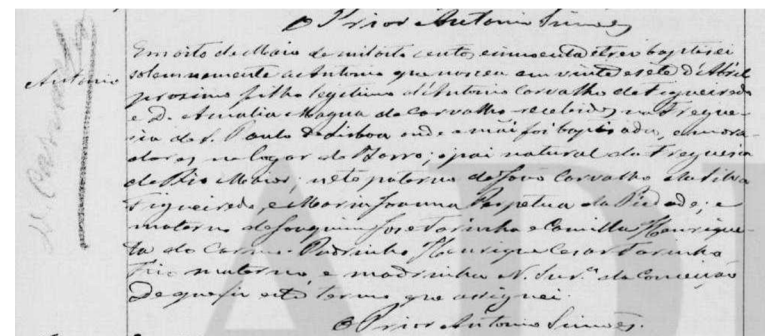 O Prior Antonio Simões
Em oito de Maio de mil oito centos cincoenta e tres baptisei
Antonio solemnemente a Antonio que nasceu em vinte e sete d'Abril
proximo filho legitimo d'Antonio Carvalho de Figueiredo
e D. Amalia Magua de Carvalho recebidos na Fregue-
sia de S. Paulo de Lisboa onde a mãi foi baptisada, e mora-
dores no logar do ; o pai natural da Freguesia
de Rio Maior; neto paterno de João Carvalho da Silva
Figueiredo, e Maria Joanna Perpetua da Piedade; e
materno de Joaquim José Farinha e Camilla Henrique-
ta do Carmo. Padrinho Henrique Cesar Farinha
Tio materno, e madrinha N. Snr.ª da Conceição
De que fiz este termo que assignei.
O Prior Antonio Simões.